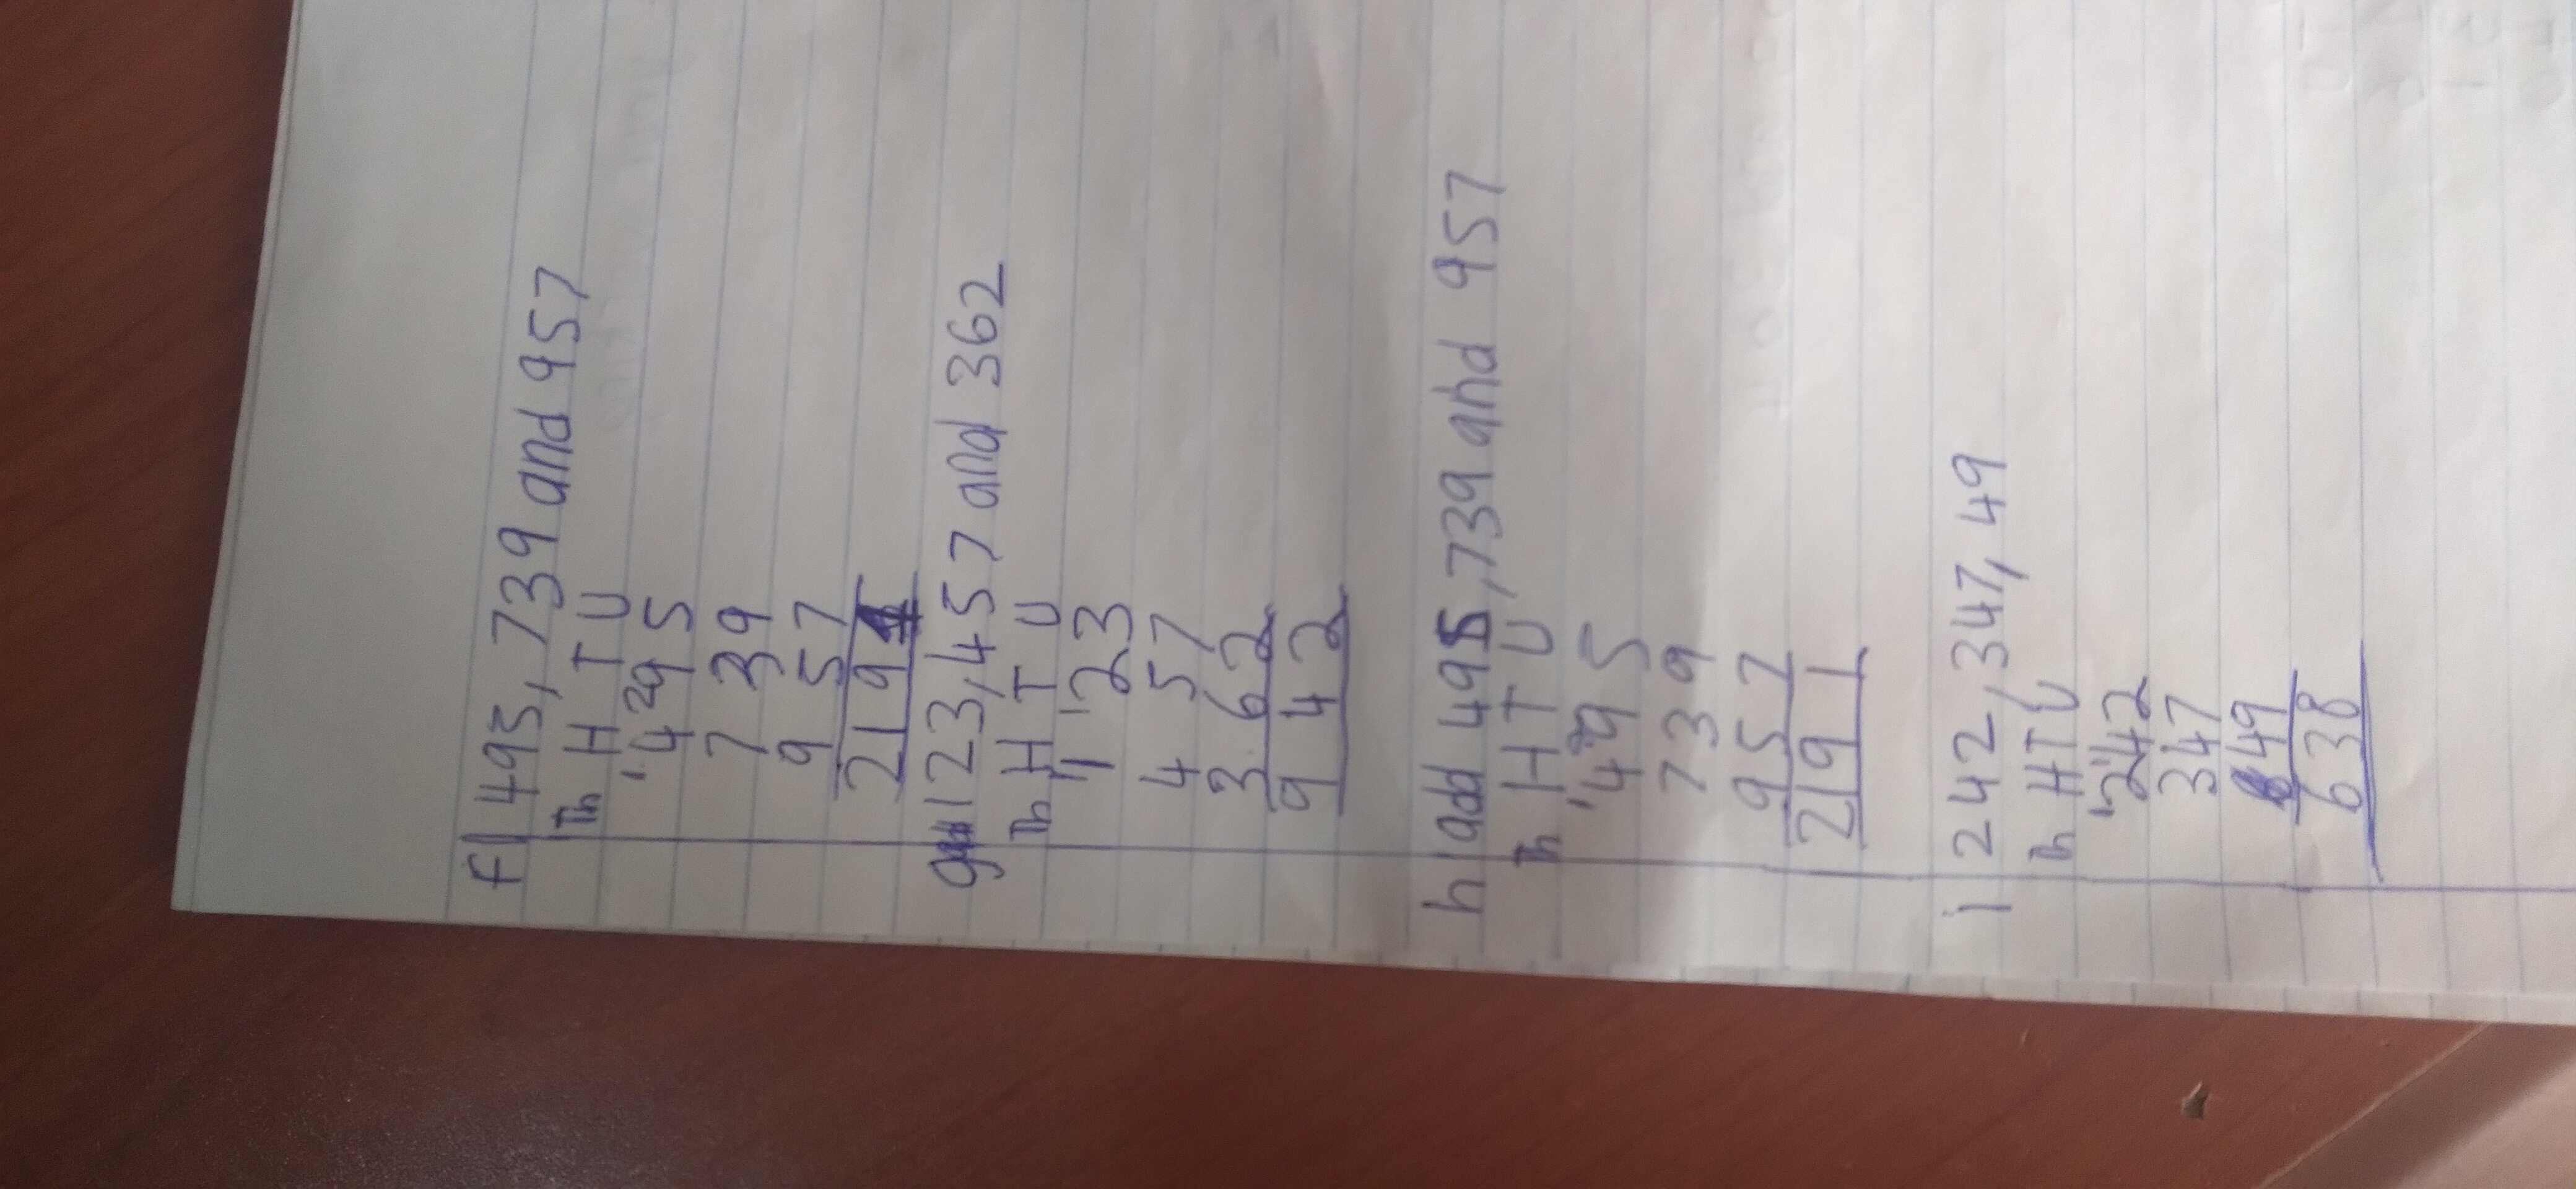 f 495, 739 and 957
Th H T U
1 4 2 9 5
7 3 9
9 5 7
2 1 9 1
g 123, 457 and 362
Th H T U
1 1 1 2 3
4 5 7
3 6 2
9 4 2
h add 495, 739 and 957
Th H T U
1 4 2 9 5
7 3 9
9 5 7
2 1 9 1
i 242, 347, 49
Th H T U
1 2 1 4 2
3 4 7
4 9
6 3 8